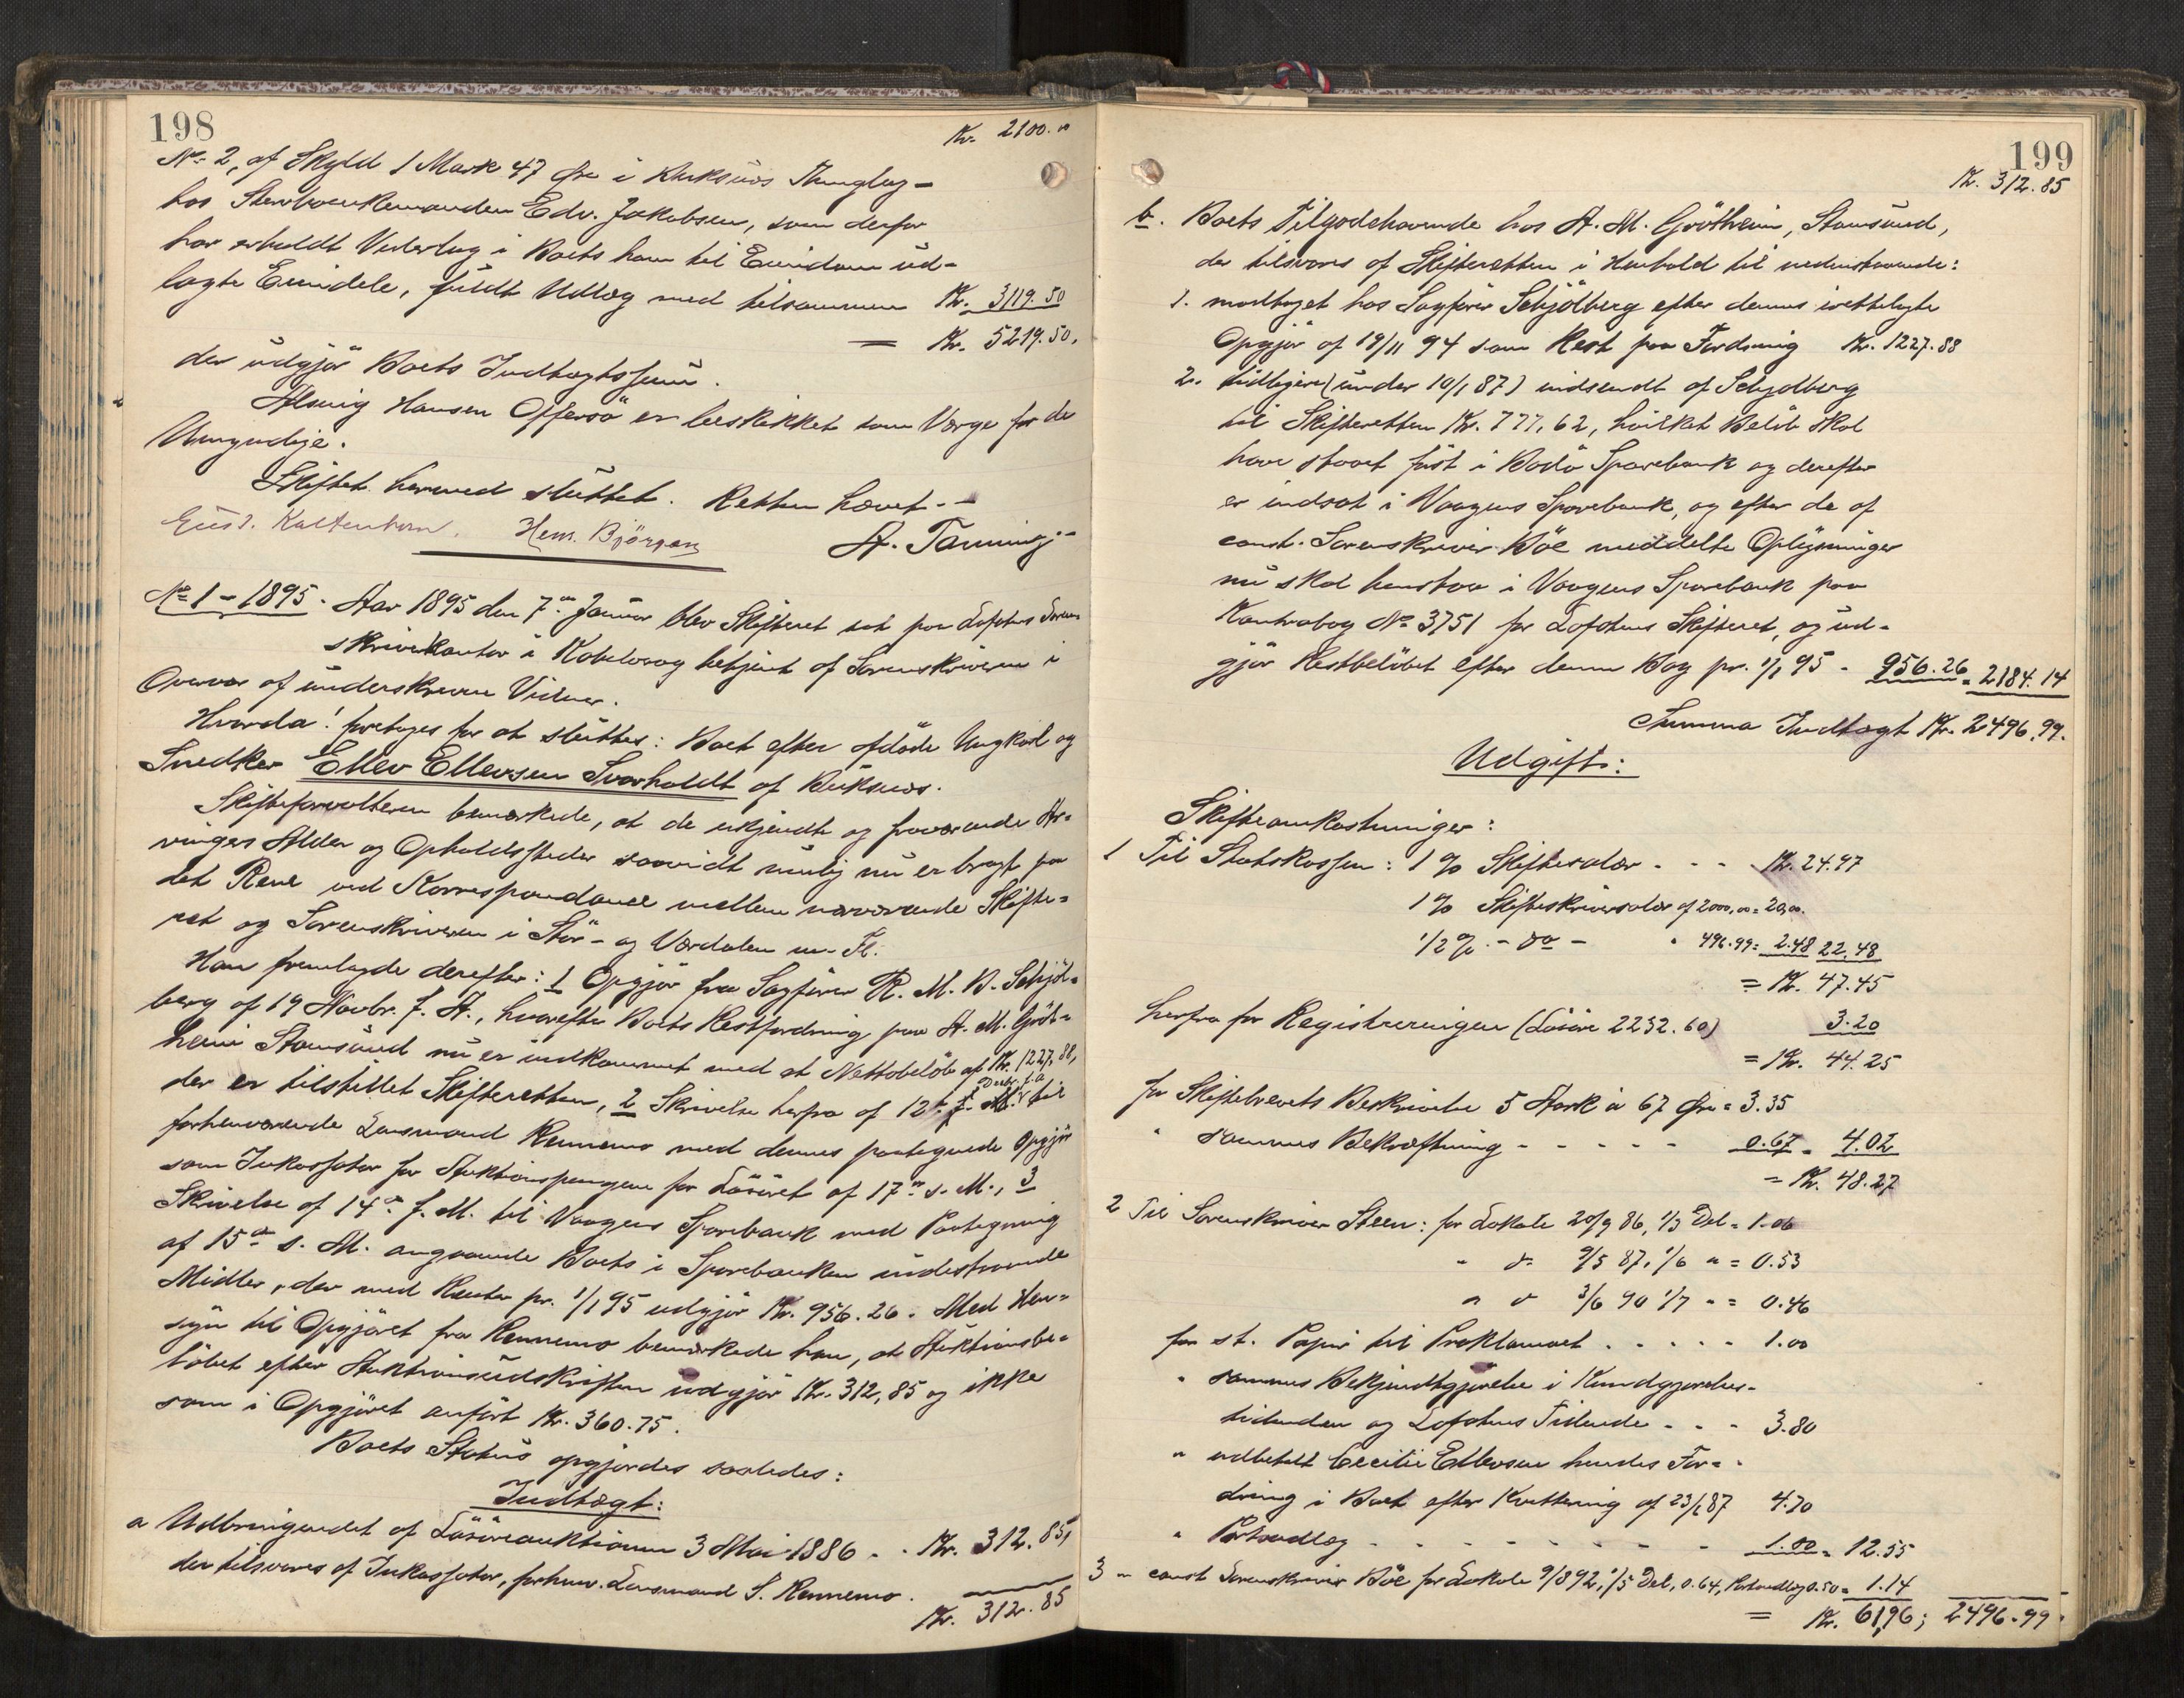 198
Kr. 2100.00
No 2, af Skyld 1 Mark 47 Øre i Buksnes Thinglag -
hos Stervboenkemanden Edv. Jakobsen, som derfor
har erholdt Vederlag i Boets ham til Eiendom ud-
lagte Eiendele, fuldt Udlæg med tilsammen Kr. 3119.50
= Kr. 5219.50.
der udgjør Boets Indtægtssum.
Hansen Offersø er beskikket som Værge for de
Umyndige.
Skiftet hermed sluttet. Retten hævet. -
Gust. Kaltenborn. Hem. Bjørgan A. Tanning. -
No 1 - 1895. Aar 1895 den 7de Januar blev Skifteret sat paa Lofotens Soren-
skriverkontor i Kabelvaag betjent af Sorenskriveren i
Overvær af underskrevne Vidner.
Hvorda! foretoges for at sluttes: Boet efter afdøde Ungkarl og
Snedker Ellev Ellevsen Svarholdt af Buksnes.
Skifteforvalteren bemærkede, at de ukjendte og fraværende Ar-
vingers Alder og Opholdssteder saavidt mulig nu er bragt paa
det Rene ved Korrespondance mellem nærværende Skifte-
ret og Sorenskriveren i Stør- og Værdalen m. Fl.
Han fremlagde derefter: 1 Opgjør fra Sagfører R. M. B. Schjøl-
berg af 19 Novbr. f. A., hvorefter Boets Restfordring paa A. M. Grøt-
heim Stamsund nu er indkommet med et Nettobeløb af Kr. 1227,88,
der er tilstillet Skifteretten, 2 Skrivelse herfra af 12te Decbr. f. A. til
forhenværende Lensmand Rennemo med dennes paategnede Opgjør
som Inkassator for Auktionspengene for Løsøret af 17de s. M., 3
Skrivelse af 14de f. M. til Vaagens Sparebank med Paategning
af 15de s. M. angaaende Boets i Sparebanken indestaaende
Midler, der med Renter pr. 1/1 95 udgjør Kr. 956.26. Med Hen-
syn til Opgjøret fra Rennemo bemærkede han, at Auktionsbe-
løbet efter Auktionsudskriften udgjør Kr. 312,85 og ikke
som i Opgjøret anført Kr. 360.75.
Boets Status opgjordes saaledes:
Indtægt:
a Udbringendet af Løsøreauktionen 3 Mai 1886 - - Kr. 312.85,
der tilsvares af Inkassator, forhenv. Lensmand S. Rennemo.
Kr. 312.85
199
Kr. 312.85
b. Boets Tilgodehavende hos A. M. Grøtheim, Stamsund,
der tilsvares af Skifteretten i Henhold til nedenstaaende:
1. modtaget hos Sagfører Schjølberg efter dennes irettelagte
Opgjør af 19/11 94 som Rest paa Fordring Kr. 1227.88
2. tidligere (under 10/1 87) indsendt af Schjølberg
til Skifteretten Kr. 777,62, hvilket Beløb skal
have staaet først i Bodø Sparebank og derefter
er indsat i Vaagens Sparebank, og efter de af
const. Sorenskriver Bøe meddelte Oplysninger
nu skal henstaa i Vaagens Sparebank paa
Kontrabog No 3751 for Lofotens Skifteret, og ud-
gjør Restbeløbet efter denne Bog pr. 1/1 95 - 956.26 = 2184.14
Summa Indtægt Kr. 2496.99.
Udgift:
Skifteomkostninger:
1 Til Statskassen: 1 % Skiftesalær - - - Kr. 24.97
1 % Skifteskriversalær af 2000,00 = 20,00.
1/2 % - do - " 496.99 = 2.48 22.48
= Kr. 47.45
herfra for Registreringen (Løsøre 2232.60) 3.20
= Kr. 44.25
for Skiftebrevets Beskrivelse 5 Ark à 67 Øre = 3.35
" sammes Bekræftning - - - - - 0.67 = 4.02
= Kr. 48.27
2 Til Sorenskriver Steen: for Lokale 20/9 86, 1/3 Del = 1.06
" do 9/5 87, 1/6 " = 0.53
" do 3/6 90 1/7 " = 0.46
for st. Papir til Proklamaet - - - - - 1.00
" sammes Bekjendtgjørelse i Kundgjørelses-
tidenden og Lofotens Tidende - - - 3.80
" udbetalt Cecilie Ellevsen hendes For-
dring i Boet efter Kvittering af 23/1 87 4.70
" Portoudlæg - - - - - - - 1.00 = 12.55
3 " const Sorenskriver Bøe for Lokale 9/8 92, 1/5 Del, 0.64, Portoudlæg 0.50 = 1.14
= Kr. 61,96; 2496.99.